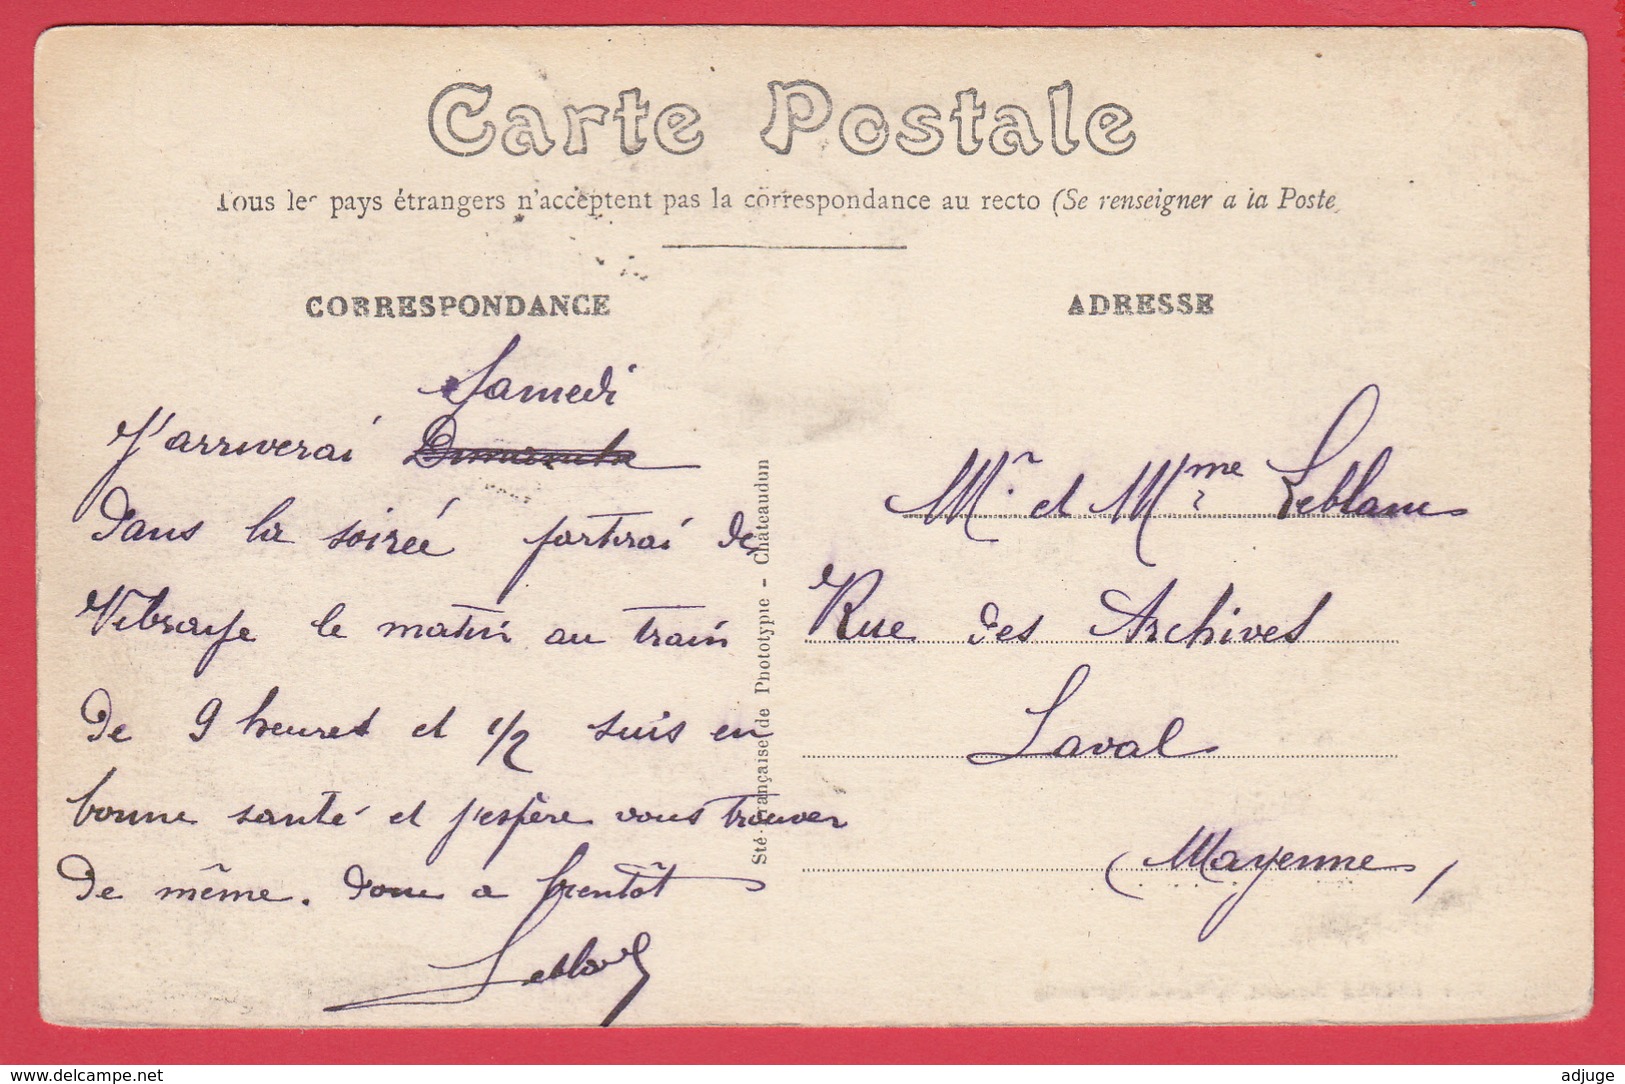 Carte Postale
Tous les pays étrangers n'acceptent pas la correspondance au recto (Se renseigner a la Poste
CORRESPONDANCE
ADRESSE
Samedi
J'arriverai Dimanche
dans la soirée partirai de
Vibraye le matin au train
de 9 heures et 1/2 suis en
bonne santé et j'espère vous trouver
de même. donc a bientôt
Leblanc
Sté Française de Phototypie - Châteaudun
Mr. et Mme Leblanc
Rue des Archives
Laval
(Mayenne)
www.delcampe.net
adjuge